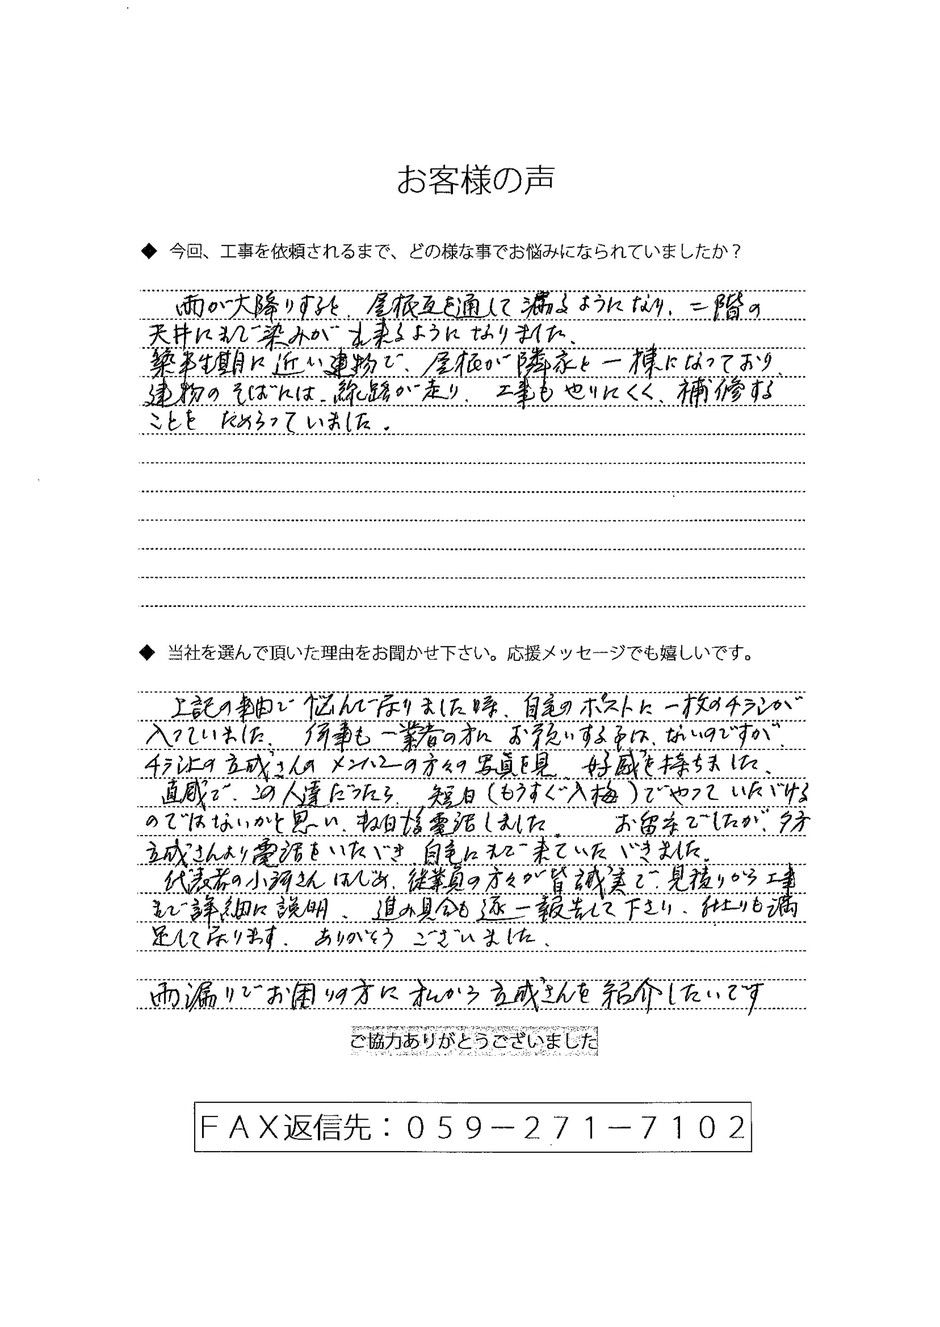 お客様の声
◆ 今回、工事を依頼されるまで、どの様な事でお悩みになられていましたか?
雨が大降りすると、屋根瓦を通して漏るようになり、二階の
天井にまで染みが出来るようになりました。
築半世期に近い建物で、屋根が隣家と一棟になっており、
建物のそばには、線路が走り、工事もやりにくく、補修する
ことをためらっていました。
◆ 当社を選んで頂いた理由をお聞かせ下さい。応援メッセージでも嬉しいです。
上記の事由で悩んで居りました時、自宅のポストに一枚のチラシが
入っていました。何事も一業者の方にお願いする事は、ないのですが、
チラシ上の立成さんのメンバーの方々の写真を見、好感を持ちました。
直感で、この人達だったら、短日(もうすぐ入梅)でやっていただける
のではないかと思い、電話しました。お留守でしたが、夕方
立成さんより電話をいただき、自宅にまで来ていただきました。
代表者の小河さんはじめ、従業員の方々が皆誠実で、見積りから工事
まで詳細に説明、進み具合も逐一報告して下さり、仕上りも満
足して居ります。ありがとうございました。
雨漏りでお困りの方に私から立成さんを紹介したいです
ご協力ありがとうございました
FAX返信先:059-271-7102